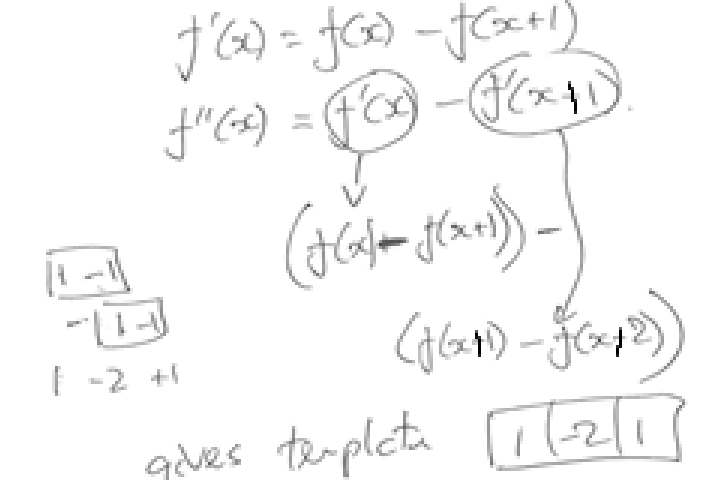 f'(x) = f(x) - f(x+1)
f''(x) = f'(x) - f'(x+1).
(f(x) - f(x+1)) -
(f(x+1) - f(x+2))
1 -1
- 1 -1
1 -2 +1
gives template 1 -2 1